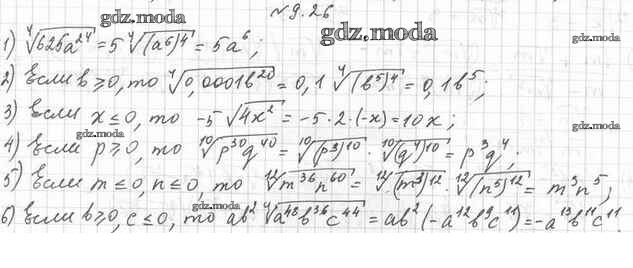 №9.26
gdz.moda
gdz.moda
gdz.moda
1) ⁴√(625a²⁴) = 5 ⁴√((a⁶)⁴) = 5a⁶;
2) Если b ≥ 0, то ⁴√(0,0001b²⁰) = 0,1 ⁴√((b⁵)⁴) = 0,1b⁵;
3) Если x ≤ 0, то -5√(4x²) = -5·2·(-x) = 10x;
gdz.moda
gdz.moda
4) Если p ≥ 0, то ¹⁰√(p³⁰q⁴⁰) = ¹⁰√((p³)¹⁰) · ¹⁰√((q⁴)¹⁰) = p³q⁴;
5) Если m ≤ 0, n ≤ 0, то ¹²√(m³⁶n⁶⁰) = ¹²√((m³)¹²) · ¹²√((n⁵)¹²) = m³n⁵;
gdz.moda
gdz.moda
6) Если b ≥ 0, c ≤ 0, то ab² ⁴√(a⁴⁸b³⁶c⁴⁴) = ab²(-a¹²b⁹c¹¹) = -a¹³b¹¹c¹¹.